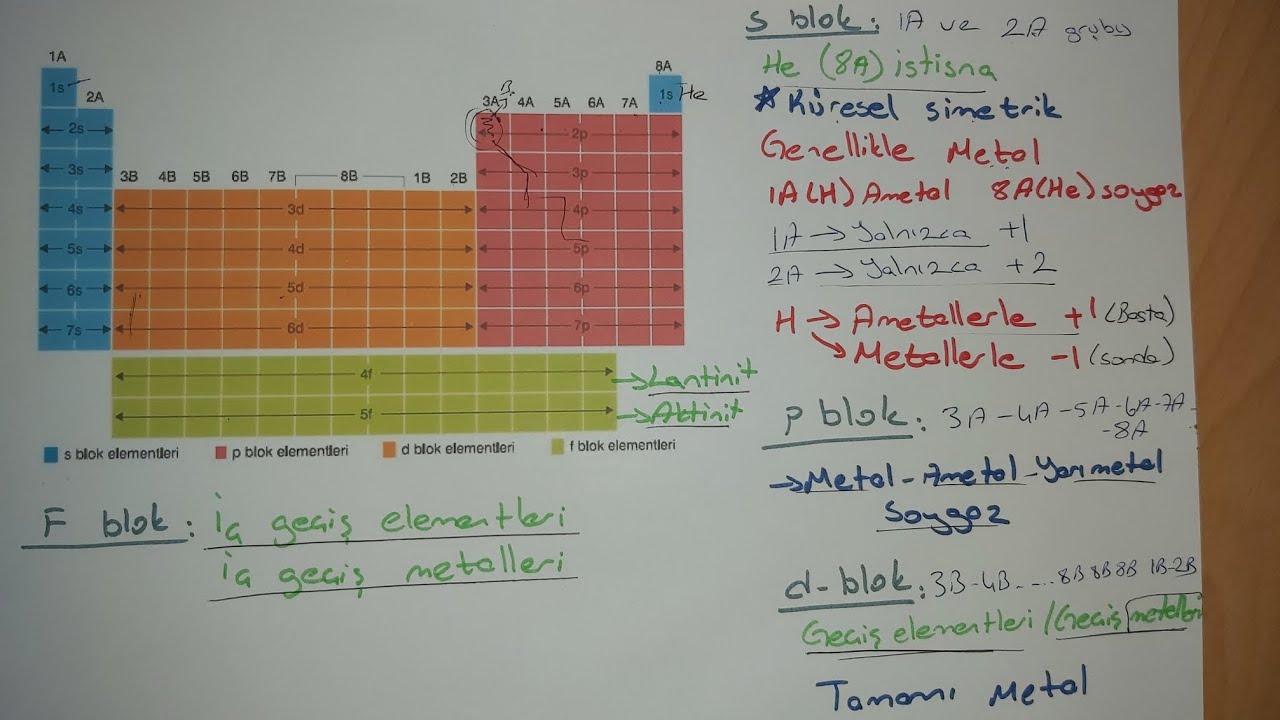 1A
8A
1s
2A
B
3A 4A 5A 6A 7A
1s He
2s
2p
3s
3B 4B 5B 6B 7B 8B 1B 2B
3p
4s
3d
4p
5s
4d
5p
6s
5d
6p
7s
6d
7p
4f
→Lantinit
5f
→Aktinit
s blok elementleri
p blok elementleri
d blok elementleri
f blok elementleri
F blok: İç geçiş elementleri
İç geçiş metalleri
s blok: 1A ve 2A grubu
He (8A) istisna
★ Küresel simetrik
Genellikle Metal
1A(H) Ametal 8A(He) soygaz
1A → Yalnızca +1
2A → Yalnızca +2
H → Ametallerle +1 (Başta)
↘ Metallerle -1 (sonda)
p blok: 3A-4A-5A-6A-7A-
-8A
→Metal-Ametal-Yarımetal
Soygaz
d-blok: 3B-4B-...8B 8B 8B 1B-2B
Geçiş elementleri / Geçiş metalleri
Tamamı Metal